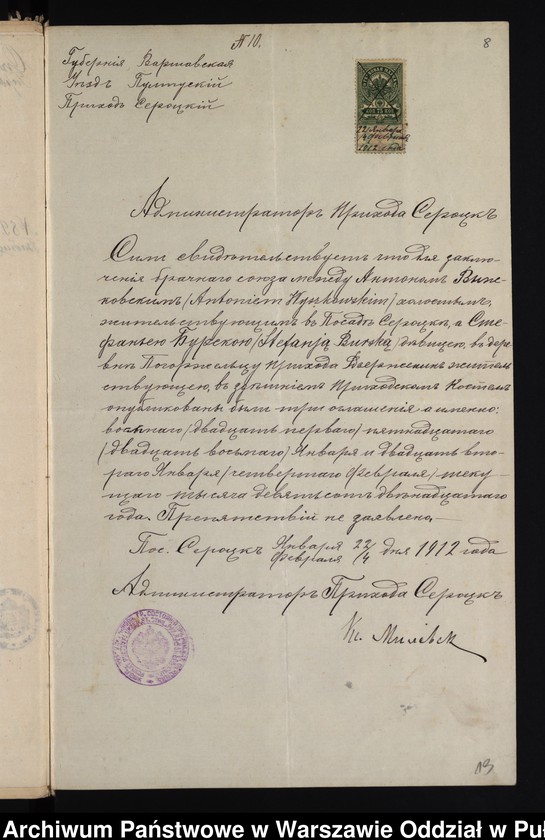 № 10.
8
Губернія Варшавская
Уѣздъ Пултускій
Приходъ Сероцкій
22 Января
1912 года
Администраторъ Прихода Сероцкъ
Симъ свидѣтельствуетъ что для заклю-
ченія брачнаго союза между Антономъ Выш-
ковскимъ /Antonim Wyszkowskim/ холостымъ,
жительствующимъ въ Посадѣ Сероцкъ, а Сте-
фаніею Бурскою /Stefanją Burską/ дѣвицею, въ дерев-
нѣ Погоржельцу прихода Дзержениж житель-
ствующею, въ здѣшнемъ Приходскомъ Костелѣ
опубликованы были три оглашенія а именно:
восьмаго /двадцать перваго/ пятнадцатаго
/двадцать восьмаго/ Января и двадцать вто-
раго Января /четвертаго Февраля/ теку-
щаго тысяча девятьсотъ двѣнадцатаго
года. Препятствій не заявлено.—
Пос. Сероцкъ Января 22 / Февраля 4 дня 1912 года
Администраторъ Прихода Сероцкъ
Кс. Милевск
13
Archiwum Państwowe w Warszawie Oddział w Puł